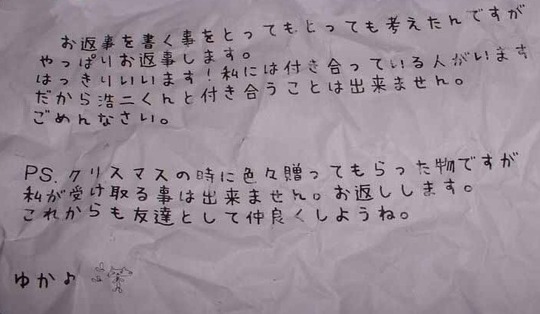 お返事を書く事をとってもとっても考えたんですが
やっぱりお返事します。
はっきりいいます!私には付き合っている人がいます
だから浩二くんと付き合うことは出来ません。
ごめんなさい。
PS.クリスマスの時に色々贈ってもらった物ですが
私が受け取る事は出来ません。お返しします。
これからも友達として仲良くしようね。
ゆか♪